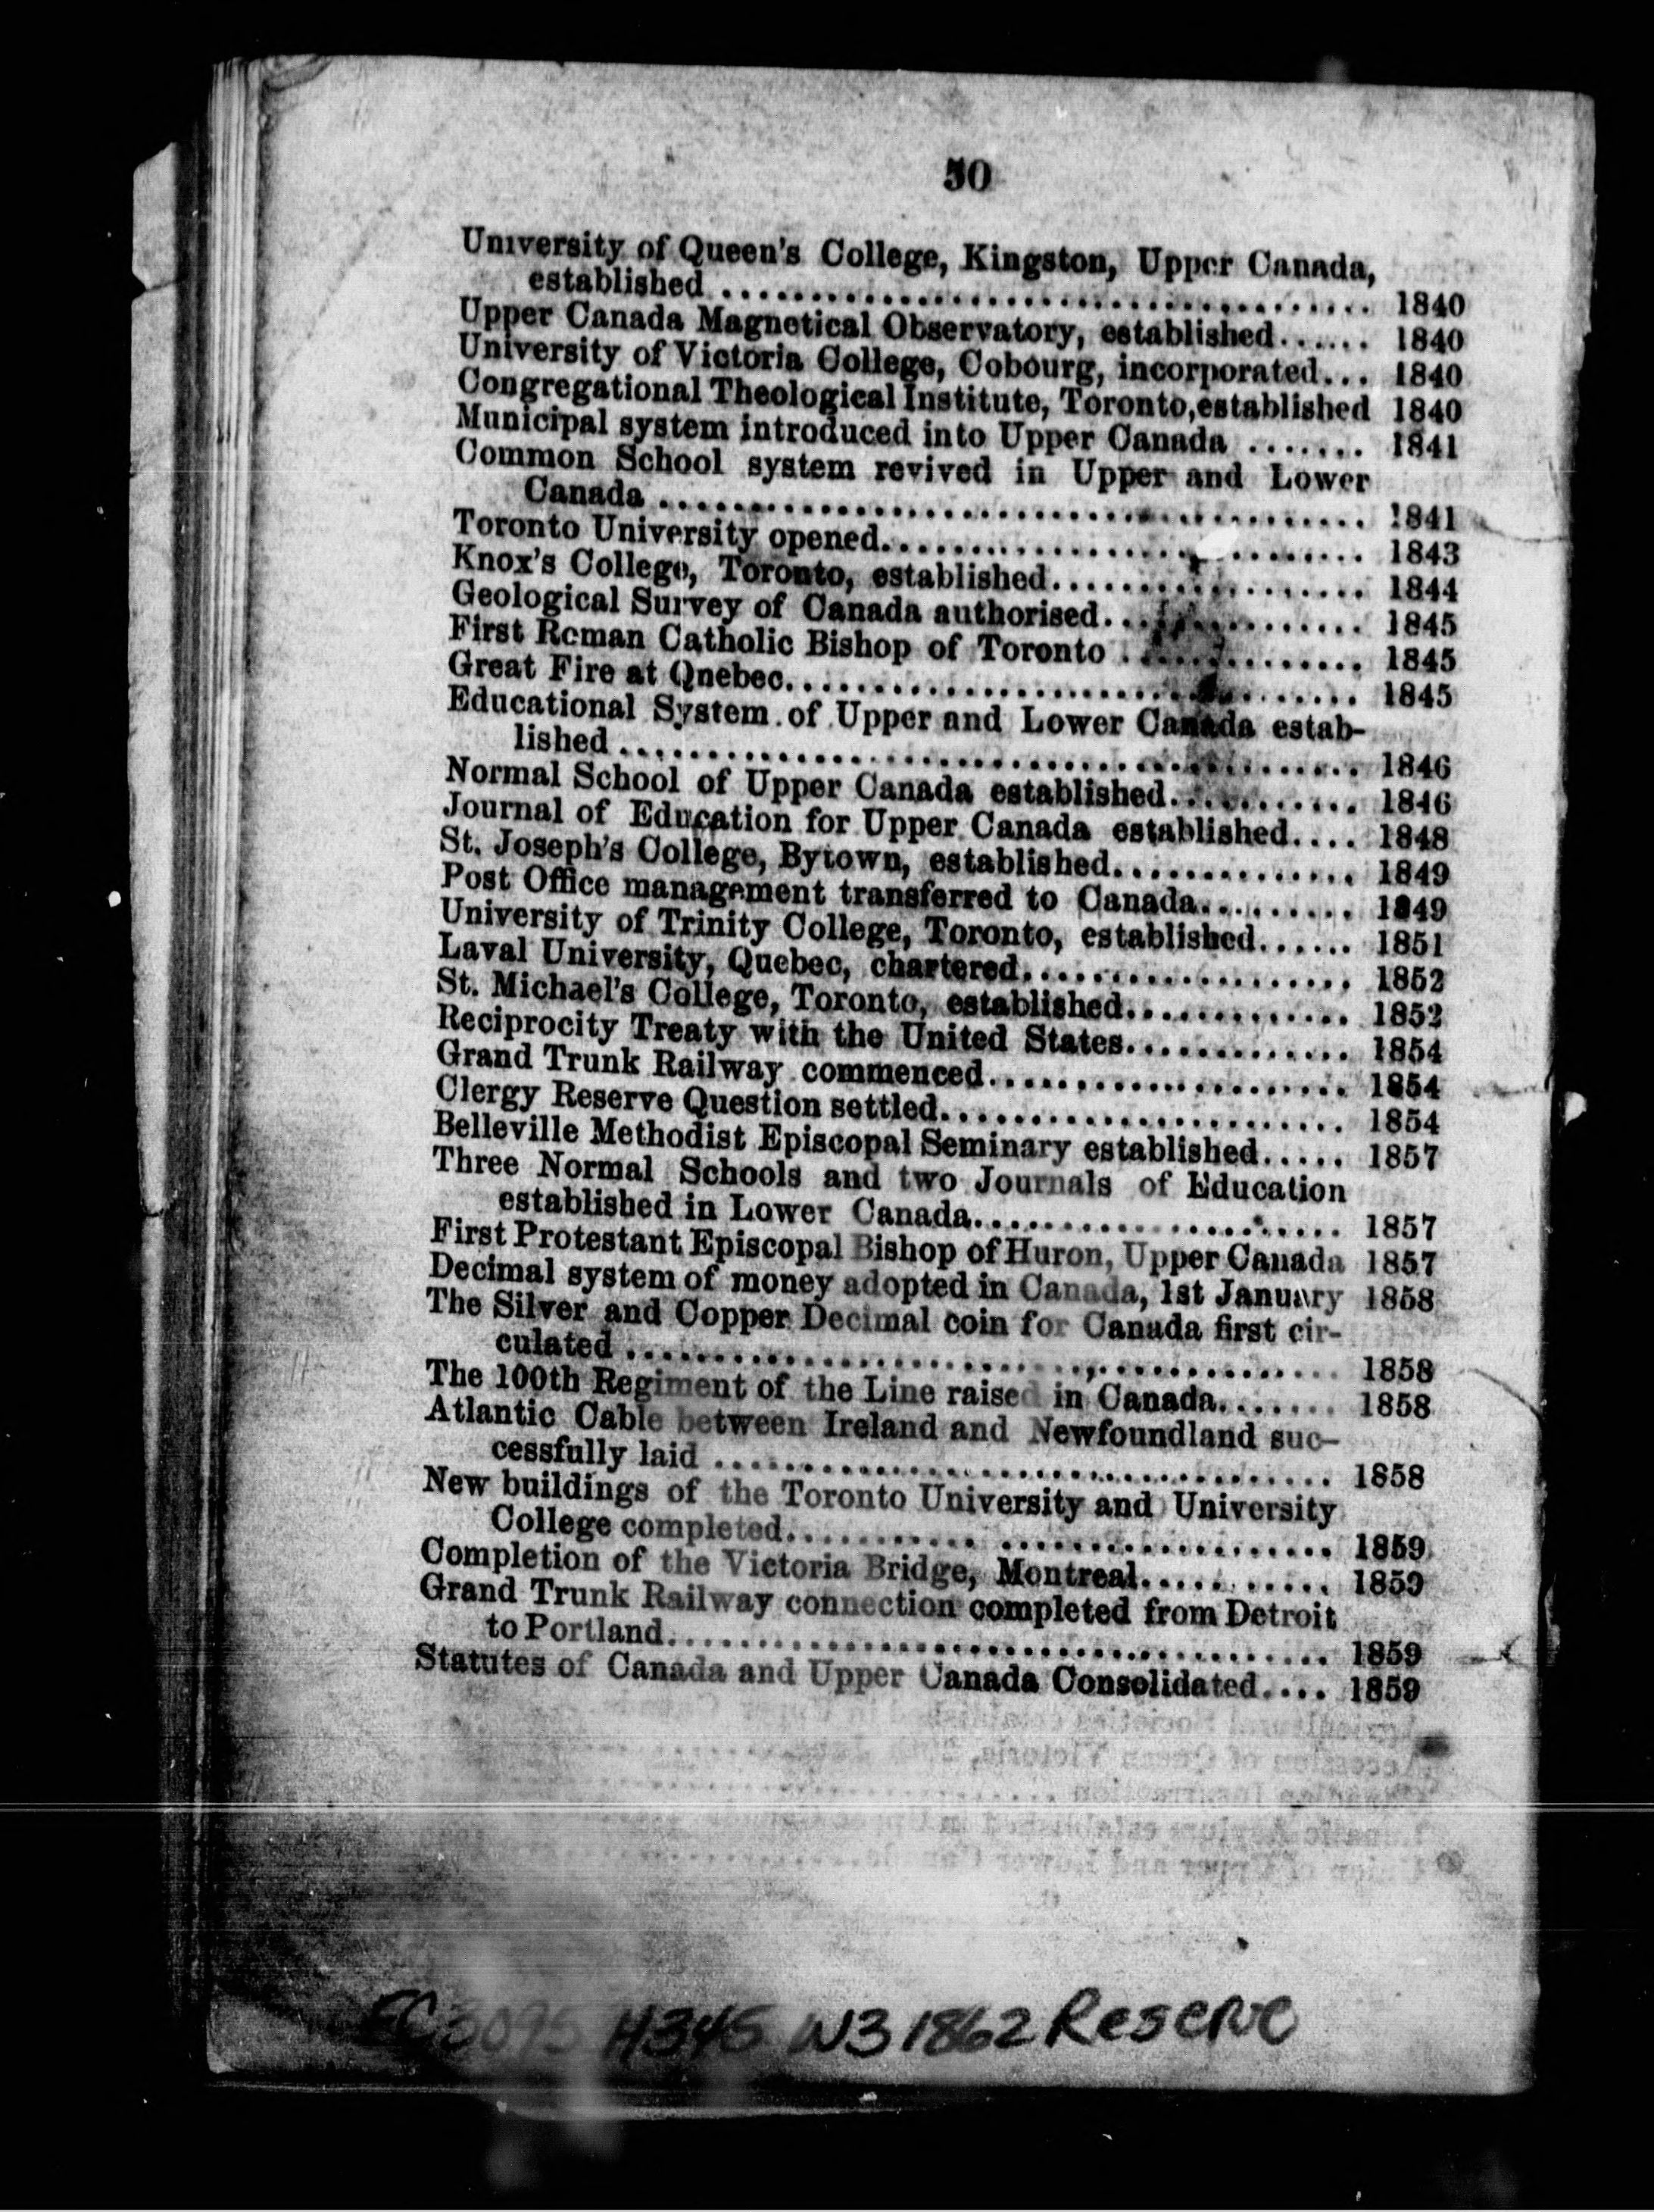 50
University of Queen's College, Kingston, Upper Canada,
established ........................................ 1840
Upper Canada Magnetical Observatory, established...... 1840
University of Victoria College, Cobourg, incorporated... 1840
Congregational Theological Institute, Toronto, established 1840
Municipal system introduced into Upper Canada ....... 1841
Common School system revived in Upper and Lower
Canada ........................................ 1841
Toronto University opened........................... 1843
Knox's College, Toronto, established.................. 1844
Geological Survey of Canada authorised............... 1845
First Roman Catholic Bishop of Toronto .............. 1845
Great Fire at Qnebec................................ 1845
Educational System of Upper and Lower Canada estab-
lished .......................................... 1846
Normal School of Upper Canada established........... 1846
Journal of Education for Upper Canada established.... 1848
St. Joseph's College, Bytown, established.............. 1849
Post Office management transferred to Canada......... 1849
University of Trinity College, Toronto, established...... 1851
Laval University, Quebec, chartered................... 1852
St. Michael's College, Toronto, established............. 1852
Reciprocity Treaty with the United States............. 1854
Grand Trunk Railway commenced..................... 1854
Clergy Reserve Question settled....................... 1854
Belleville Methodist Episcopal Seminary established..... 1857
Three Normal Schools and two Journals of Education
established in Lower Canada..................... 1857
First Protestant Episcopal Bishop of Huron, Upper Canada 1857
Decimal system of money adopted in Canada, 1st January 1858
The Silver and Copper Decimal coin for Canada first cir-
culated ........................................ 1858
The 100th Regiment of the Line raised in Canada....... 1858
Atlantic Cable between Ireland and Newfoundland suc-
cessfully laid .................................... 1858
New buildings of the Toronto University and University
College completed............................... 1859
Completion of the Victoria Bridge, Montreal........... 1859
Grand Trunk Railway connection completed from Detroit
to Portland...................................... 1859
Statutes of Canada and Upper Canada Consolidated.... 1859
FC3095 H345 W3 1862 Reserve